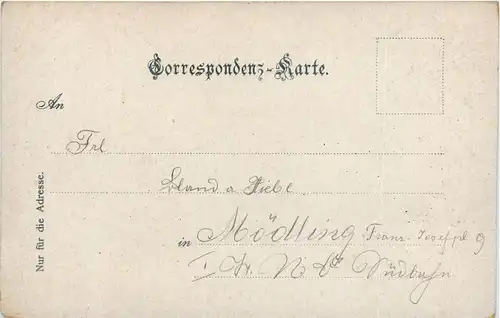 Correspondenz-Karte.
An
Frl
in Mödling Franz Josefpl 9
Südbahn
Nur für die Adresse.